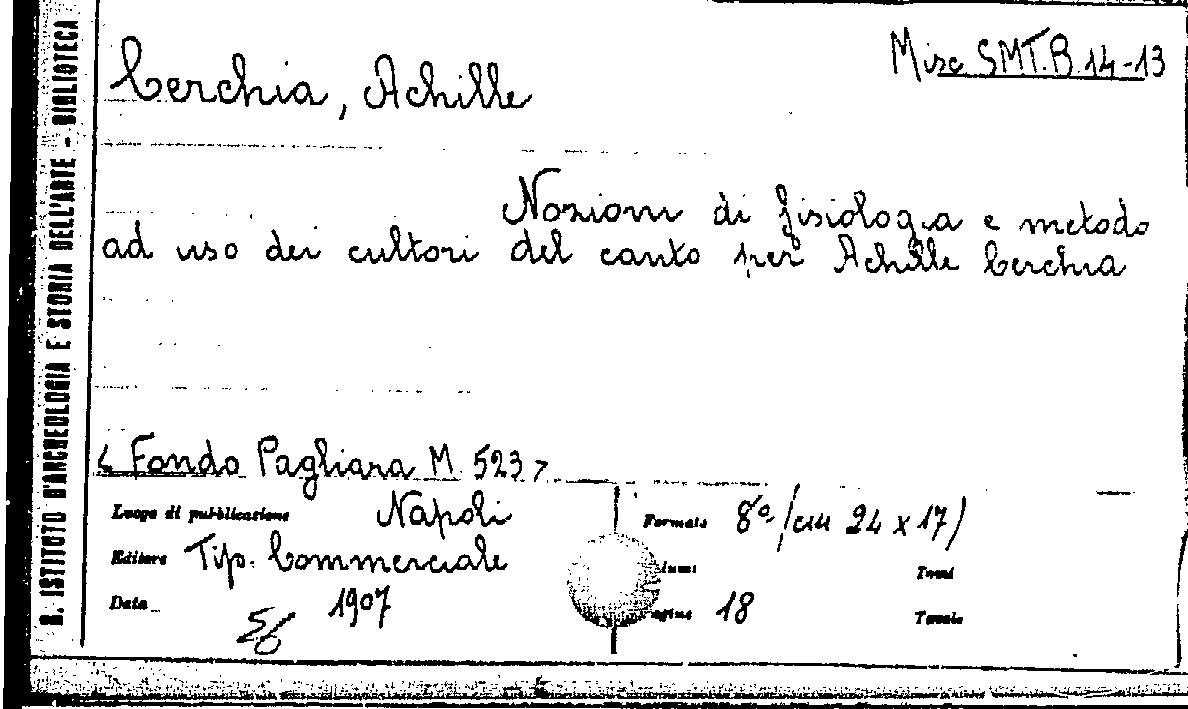 R. ISTITUTO D'ARCHEOLOGIA E STORIA DELL'ARTE - BIBLIOTECA
Cerchia, Achille
Misc SMT.B.14-13
Nozioni di fisiologia e metodo
ad uso dei cultori del canto per Achille Cerchia
< Fondo Pagliara M. 523 >
Luogo di pubblicazione Napoli
Formato 8º (cm 24 x 17)
Editore Tip. Commerciale
Tomi
Data 1907
18
Tavole